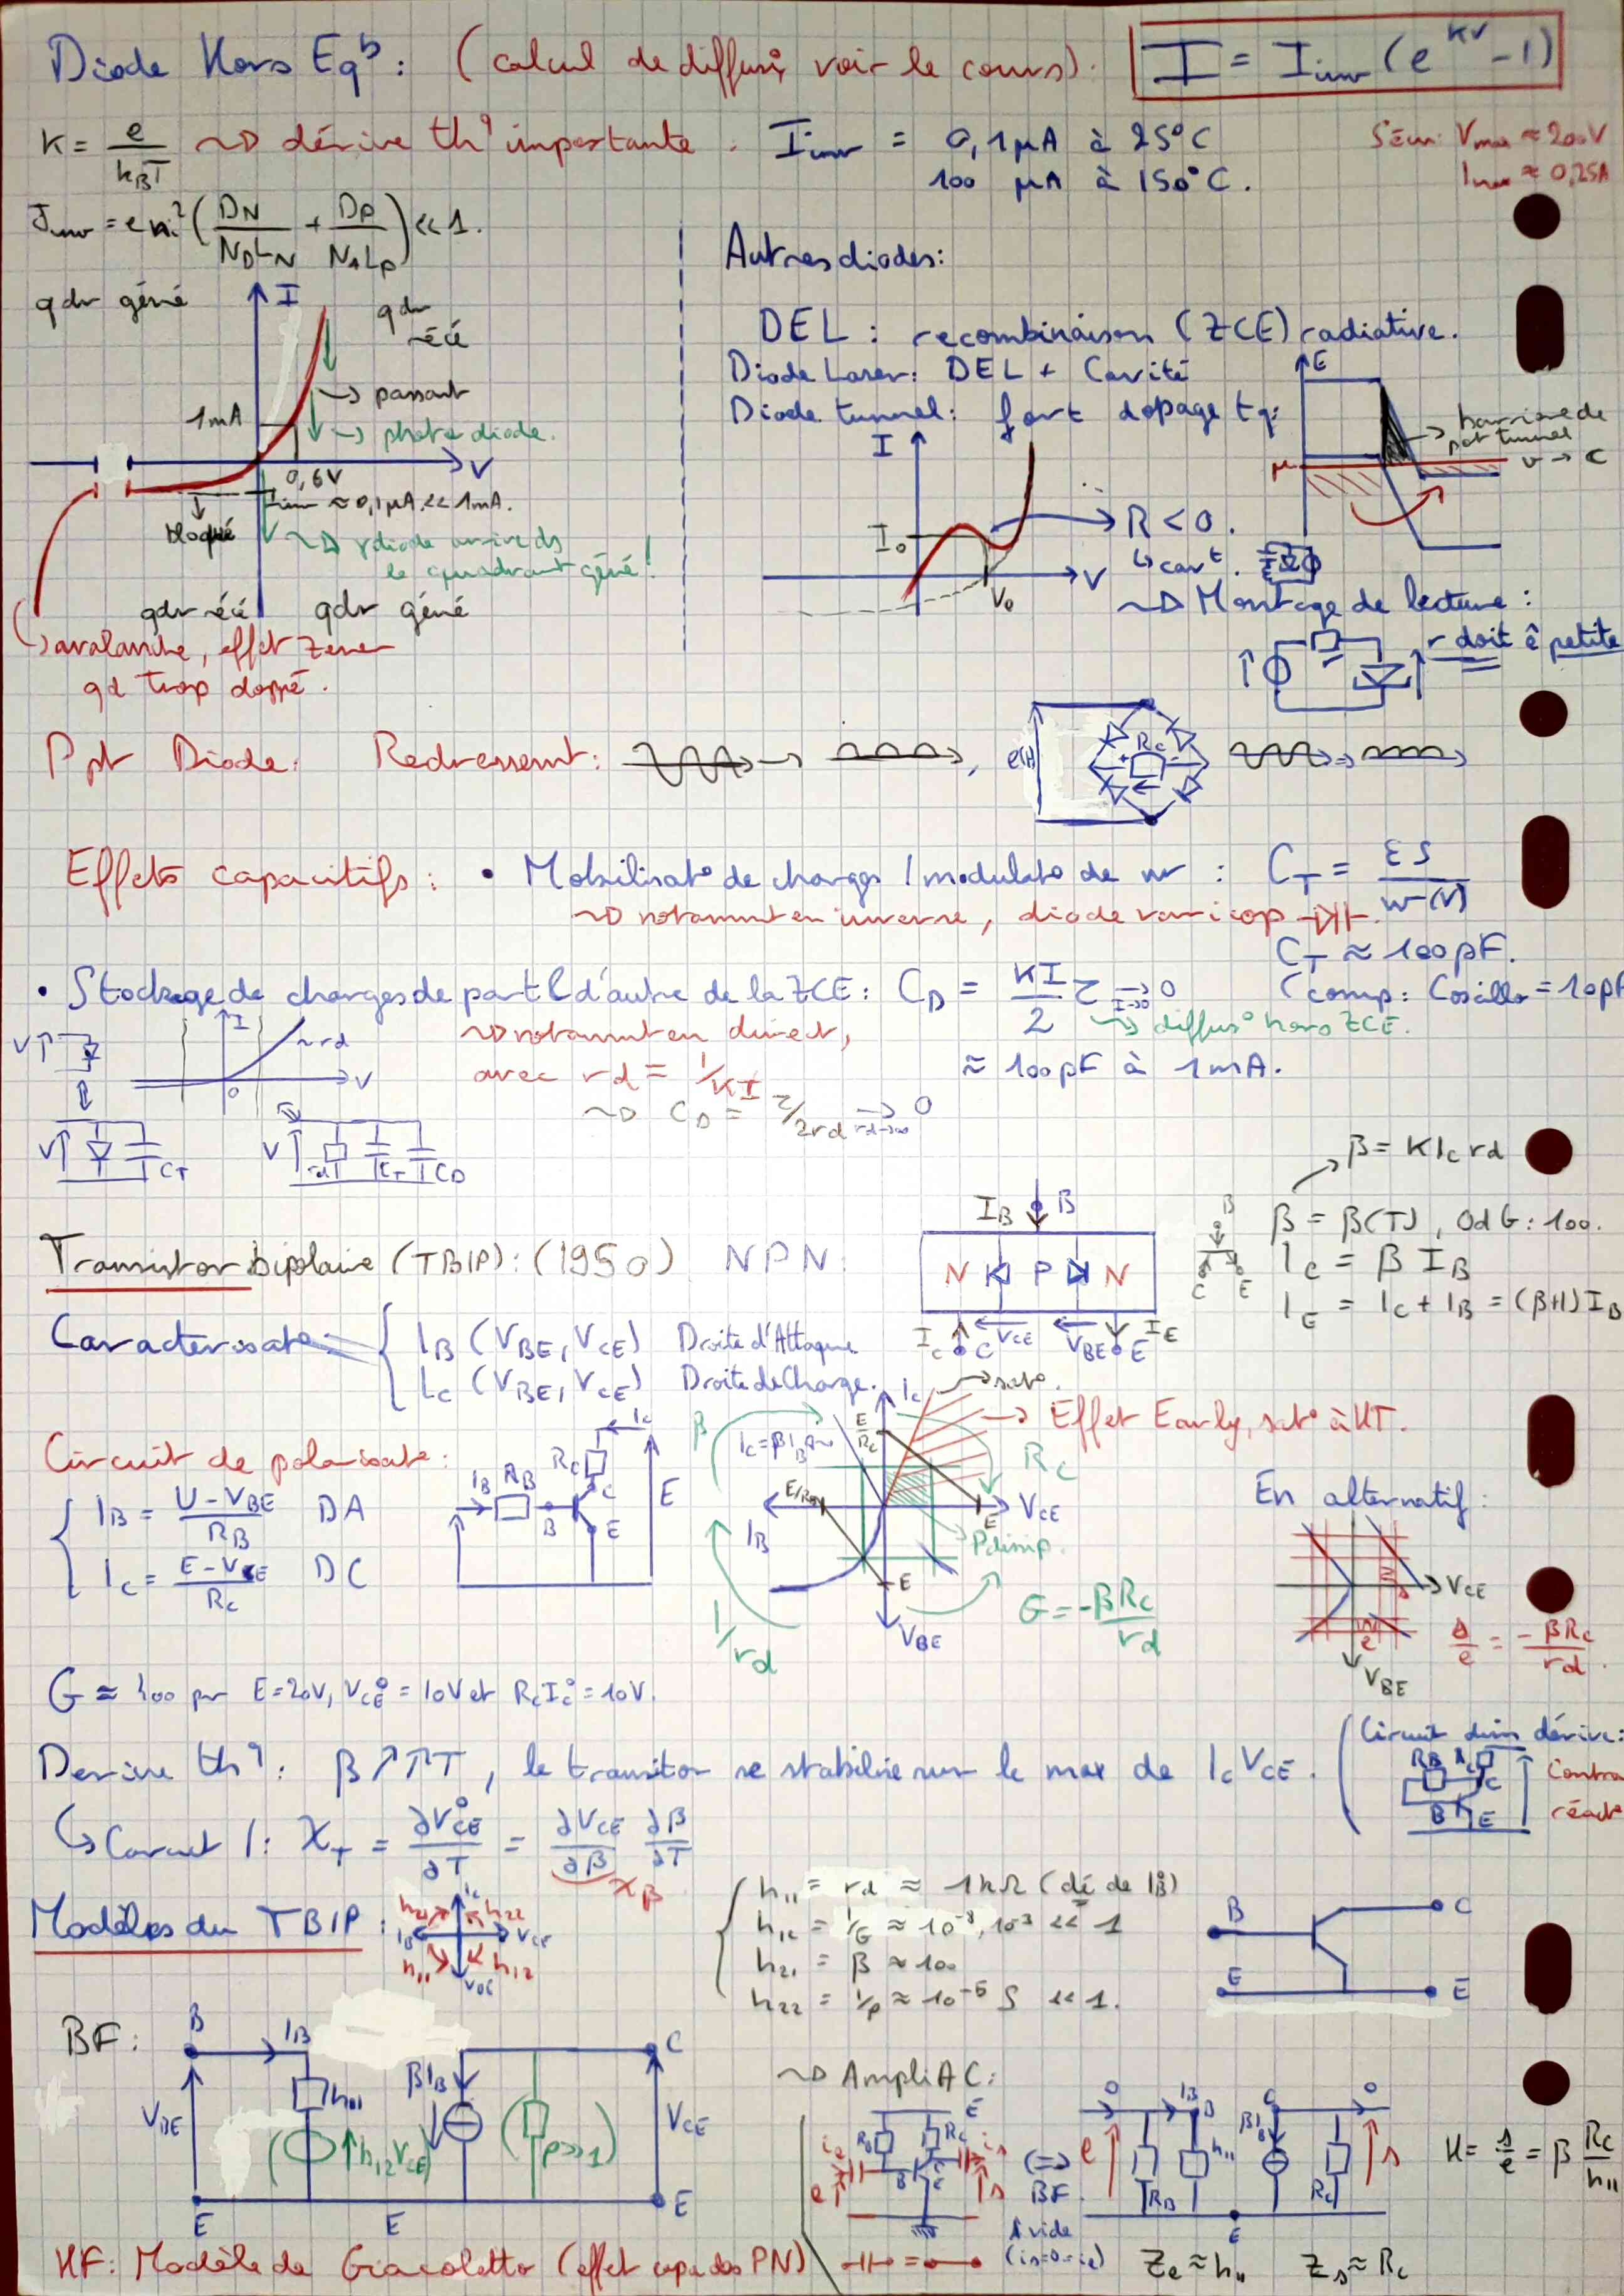 Diode Hors Eq^b : (calcul de diffus°, voir le cours). I = I_inv (e^{KV} - 1)
K = e / k_B T ~> dérive th^q importante. I_inv = 0,1 µA à 25°C
100 µA à 150°C.
Sécu: V_max ≈ 200V
I_max ≈ 0,25A
J_inv = e n_i² (D_N / N_D L_N + D_P / N_A L_P) << 1.
qdr géné
I
qdr récé
1mA
→ passant
→ photodiode.
V
0,6V
I_inv ≈ 0,1µA << 1mA.
bloqué
~> diode arrive ds
le quadrant géné !
qdr récé qdr géné
↳ avalanche, effet Zener
qd trop doppé.
Autres diodes:
DEL : recombinaison (ZCE) radiative.
Diode Laser: DEL + Cavité
Diode tunnel: fort dopage tq:
E
→ barrière de
pot tunnel
µ
I
I_0
V_0
V
→ R < 0.
~> Montage de lecture :
r doit ê petite
Ppt Diode: Redressemnt: e(t) R_c
Effets capacitifs : • Mobilisat° de charges / modulat° de w : C_T = εS / w(V)
~> notammnt en inverse, diode varicap
C_T ≈ 100pF.
• Stockage de charges de part & d'autre de la ZCE : C_D = KI/2 τ →_{I→0} 0
(comp: Coscillo = 10pF
~> diffus° hors ZCE.
~> notammnt en direct,
avec rd = 1/KI
≈ 100pF à 1mA.
~> C_D = τ/2rd →_{rd→∞} 0
V I ~rd V 0
V C_T V rd C_T C_D
β = K I_C rd
Transistor bipolaire (TBIP) : (1950) NPN:
I_B B
N P N
I_C C V_CE V_BE E I_E
B C E
β = β(T), OdG : 100.
I_C = β I_B
I_E = I_C + I_B = (β+1) I_B
Caracterisat° :
I_B (V_BE, V_CE) Droite d'Attaque
I_C (V_BE, V_CE) Droite de Charge.
Circuit de polarisat° :
I_B = U - V_BE / R_B DA
I_C = E - V_CE / R_C DC
I_B R_B B R_C C E I_C E
β I_C = βI_B I_C E/R_C → sat°.
→ Effet Early, sat° à HT.
R_C
E/R_B I_B E V_CE
P dissip.
1/rd E V_BE
G = -βR_C / rd
En alternatif :
V_CE
V_BE
s/e = -βR_C / rd.
G ≈ 400 pr E = 20V, V_CE° = 10V et R_C I_C° = 10V.
Derive th^q : β ↗ si T, le transitor se stabilise sur le max de I_C V_CE.
(Circuit dim dérive:
R_B R_C C B E
Contre
réact
χ_T = ∂V_CE° / ∂T = ∂V_CE / ∂β ∂β / ∂T
χ_β
Modèles du TBIP :
h_21 I_C h_22
I_B V_CE
h_11 V_BE h_12
h_11 = rd ≈ 1kΩ (dé de I_B)
h_12 = 1/G ≈ 10^-3 << 1
h_21 = β ≈ 100
h_22 = 1/ρ ≈ 10^-5 S << 1.
B C
E E
BF:
B I_B βI_B C
h_11
V_BE h_12 V_CE (ρ>>1) V_CE
E E E
~> Ampli AC:
E
R_B R_C
i_e i_s
e B C E s
<=>
BF
A vide
(i_s=0=i_e)
0 I_B B C 0
e R_B h_11 βI_B R_C s
E
H = s/e = β R_C / h_11
Z_e ≈ h_11 Z_s ≈ R_C
HF: Modèle de Giacoletto (effet capa des PN)